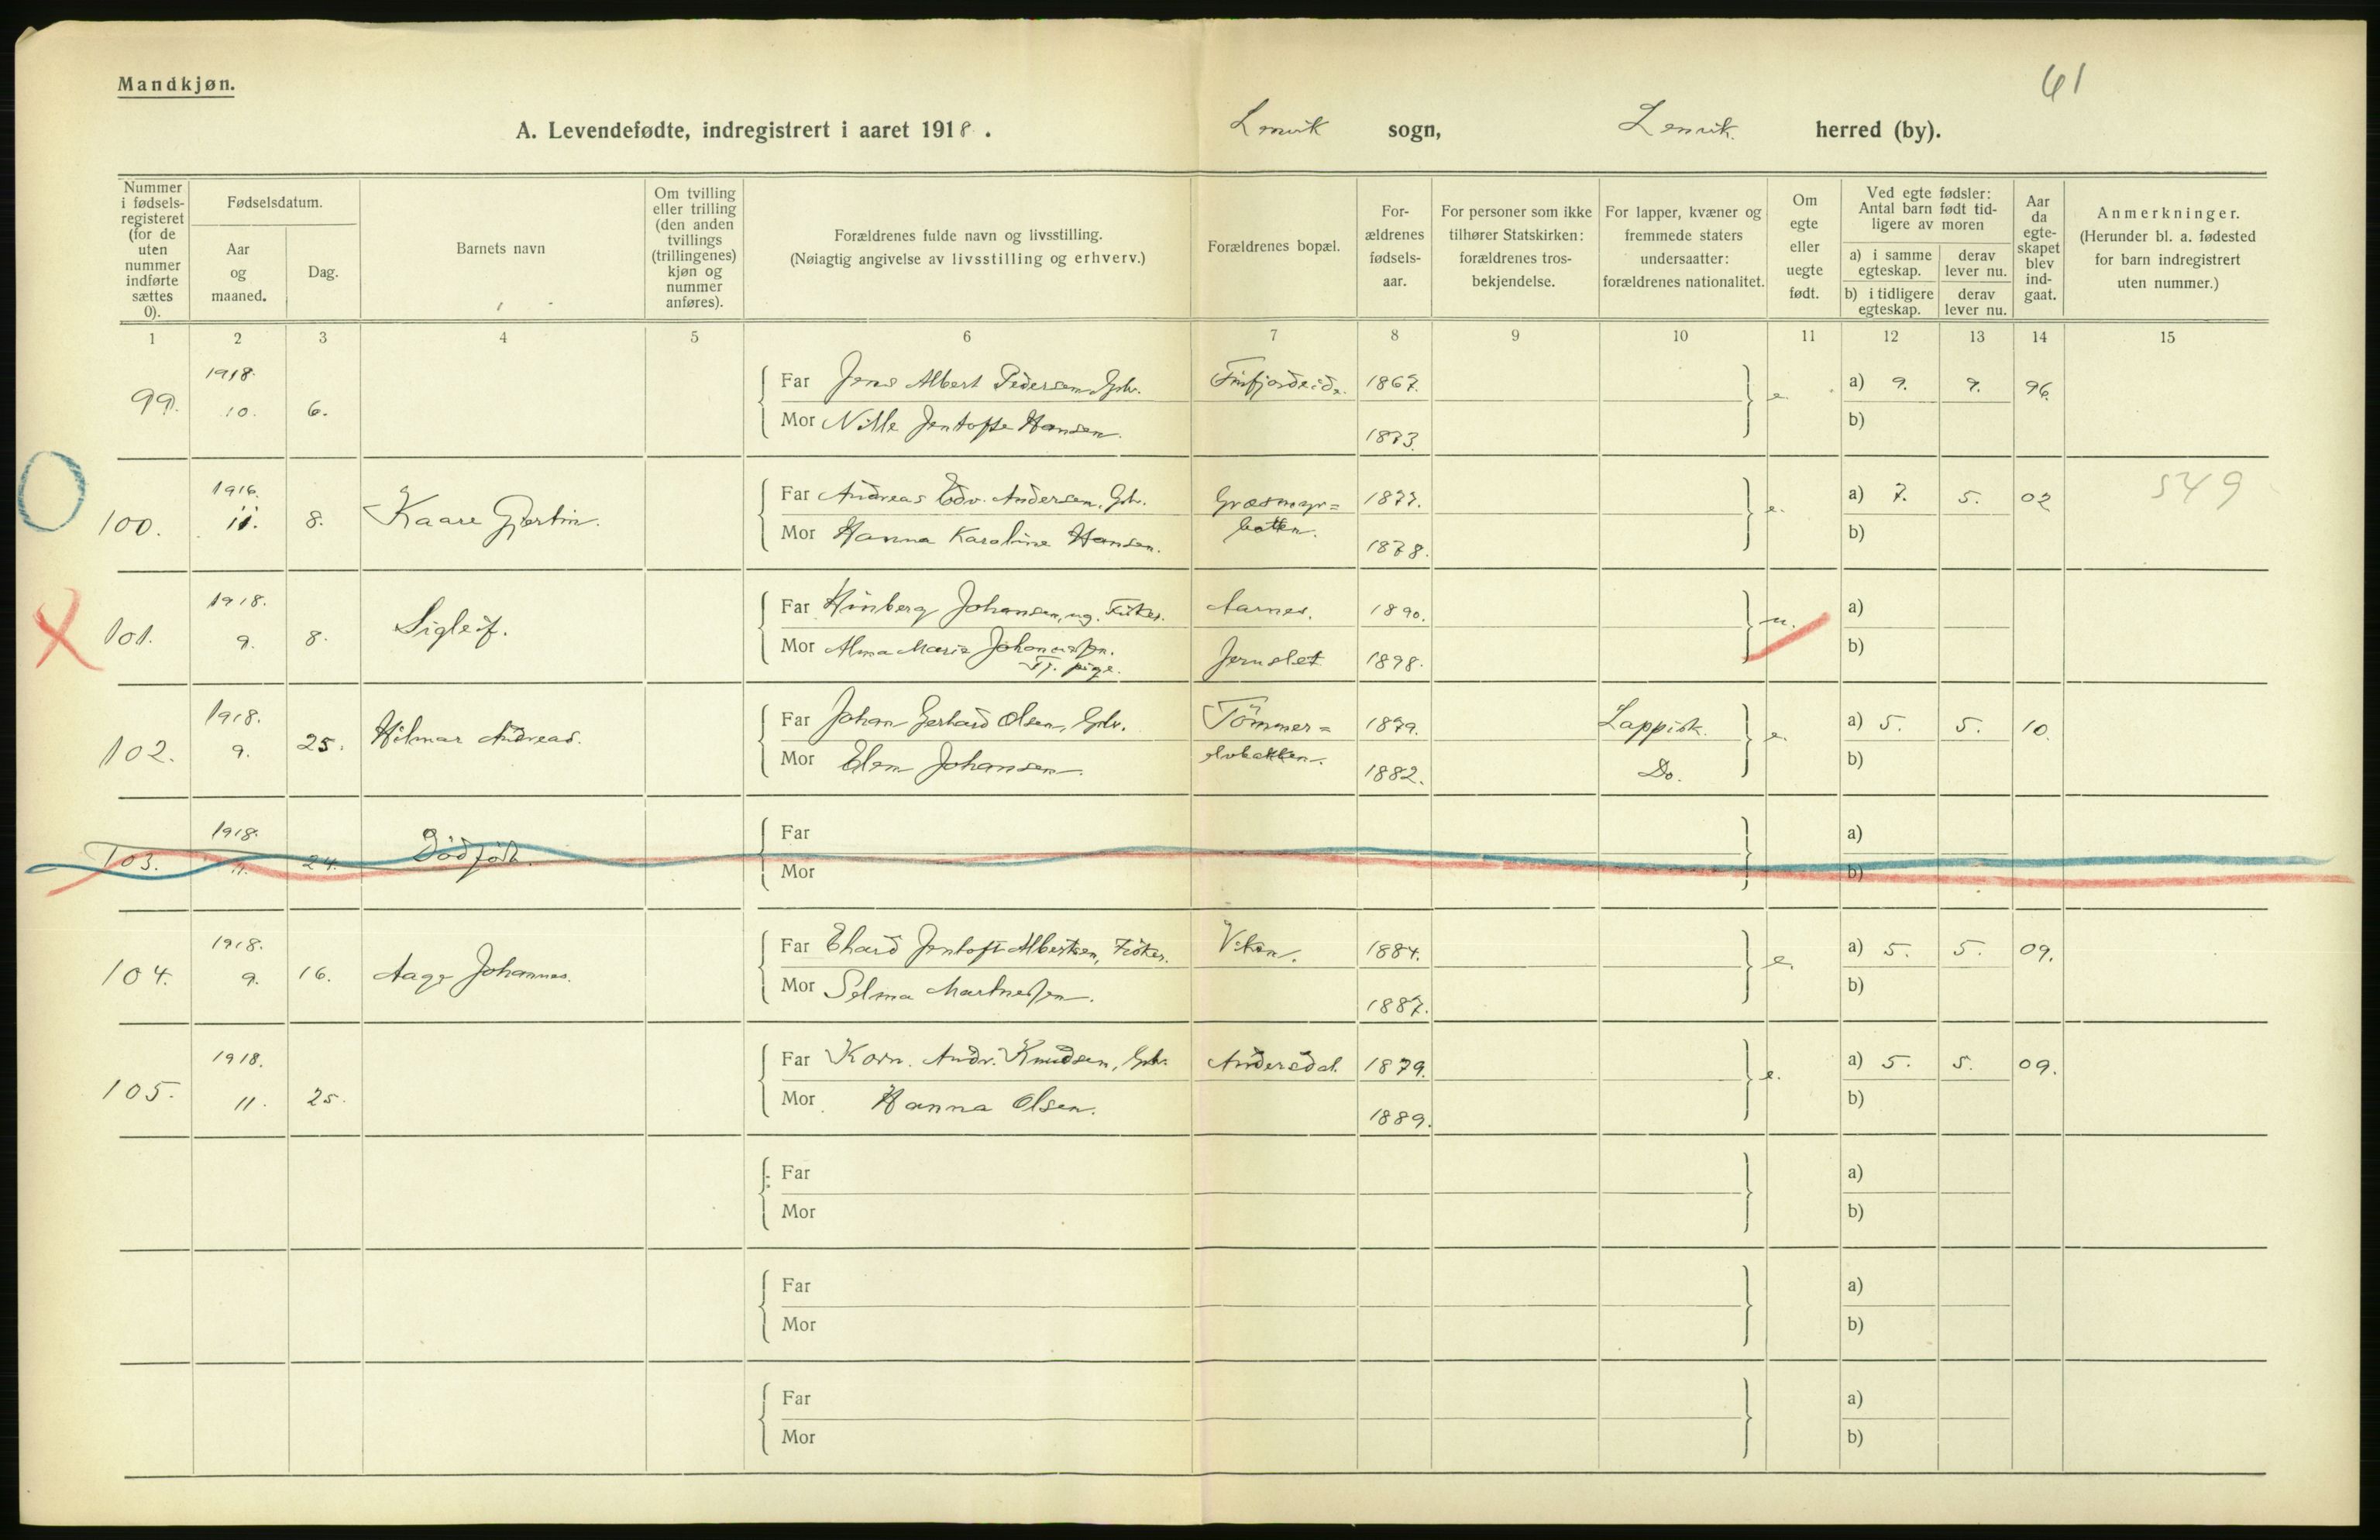 61
Mandkjøn.
A. Levendefødte, indregistrert i aaret 1918.
Lenvik sogn, Lenvik. herred (by).
Nummer i fødsels-registeret (for de uten nummer indførte sættes 0).
Fødselsdatum.
Aar og maaned.
Dag.
Barnets navn
Om tvilling eller trilling (den anden tvillings (trillingenes) kjøn og nummer anføres).
Forældrenes fulde navn og livsstilling.
(Nøiagtig angivelse av livsstilling og erhverv.)
Forældrenes bopæl.
For-ældrenes fødsels-aar.
For personer som ikke tilhører Statskirken: forældrenes tros-bekjendelse.
For lapper, kvæner og fremmede staters undersaatter: forældrenes nationalitet.
Om egte eller uegte født.
Ved egte fødsler: Antal barn født tid-ligere av moren
a) i samme egteskap.
derav lever nu.
b) i tidligere egteskap.
derav lever nu.
Aar da egte-skapet blev ind-gaat.
Anmerkninger.
(Herunder bl. a. fødested for barn indregistrert uten nummer.)
1 2 3 4 5 6 7 8 9 10 11 12 13 14 15
99. 1918. 10. 6.
Far Jens Albert Pedersen, Gbr. Finfjordeide. 1867. e. a) 9. 9. 96.
Mor Nille Jentofte Hansen. 1873. b)
100. 1916. 11. 8. Kaare Gjertin.
Far Andreas Edv. Andersen, Gbr. Græsmyr= 1877. e. a) 7. 5. 02 549
Mor Hanna Karoline Hansen. botten. 1878. b)
101. 1918. 9. 8. Sigleif.
Far Hinberg Johansen, ug. Fisker. Aarnes. 1890. u. a)
Mor Alma Marie Johannessen. Jernslet 1898. b)
Tj. pige.
102. 1918. 9. 25. Hilmar Andreas.
Far Johan Gerhard Olsen, Gbr. Tömmer= 1879. Lappisk. e. a) 5. 5. 10.
Mor Elen Johansen. elvbakken. 1882. Do. b)
103. 1918 11. 24. Dödfödt.
Far a)
Mor b)
104. 1918. 9. 16. Aage Johannes.
Far Ehard Jentoft Albertsen, Fisker. Viken. 1884. e. a) 5. 5. 09.
Mor Selma Martnessen. 1887. b)
105. 1918. 11. 25.
Far Korn. Andr. Knudsen, Gbr. Andersdal. 1879. e. a) 5. 5. 09.
Mor Hanna Olsen. 1889. b)
Far a)
Mor b)
Far a)
Mor b)
Far a)
Mor b)